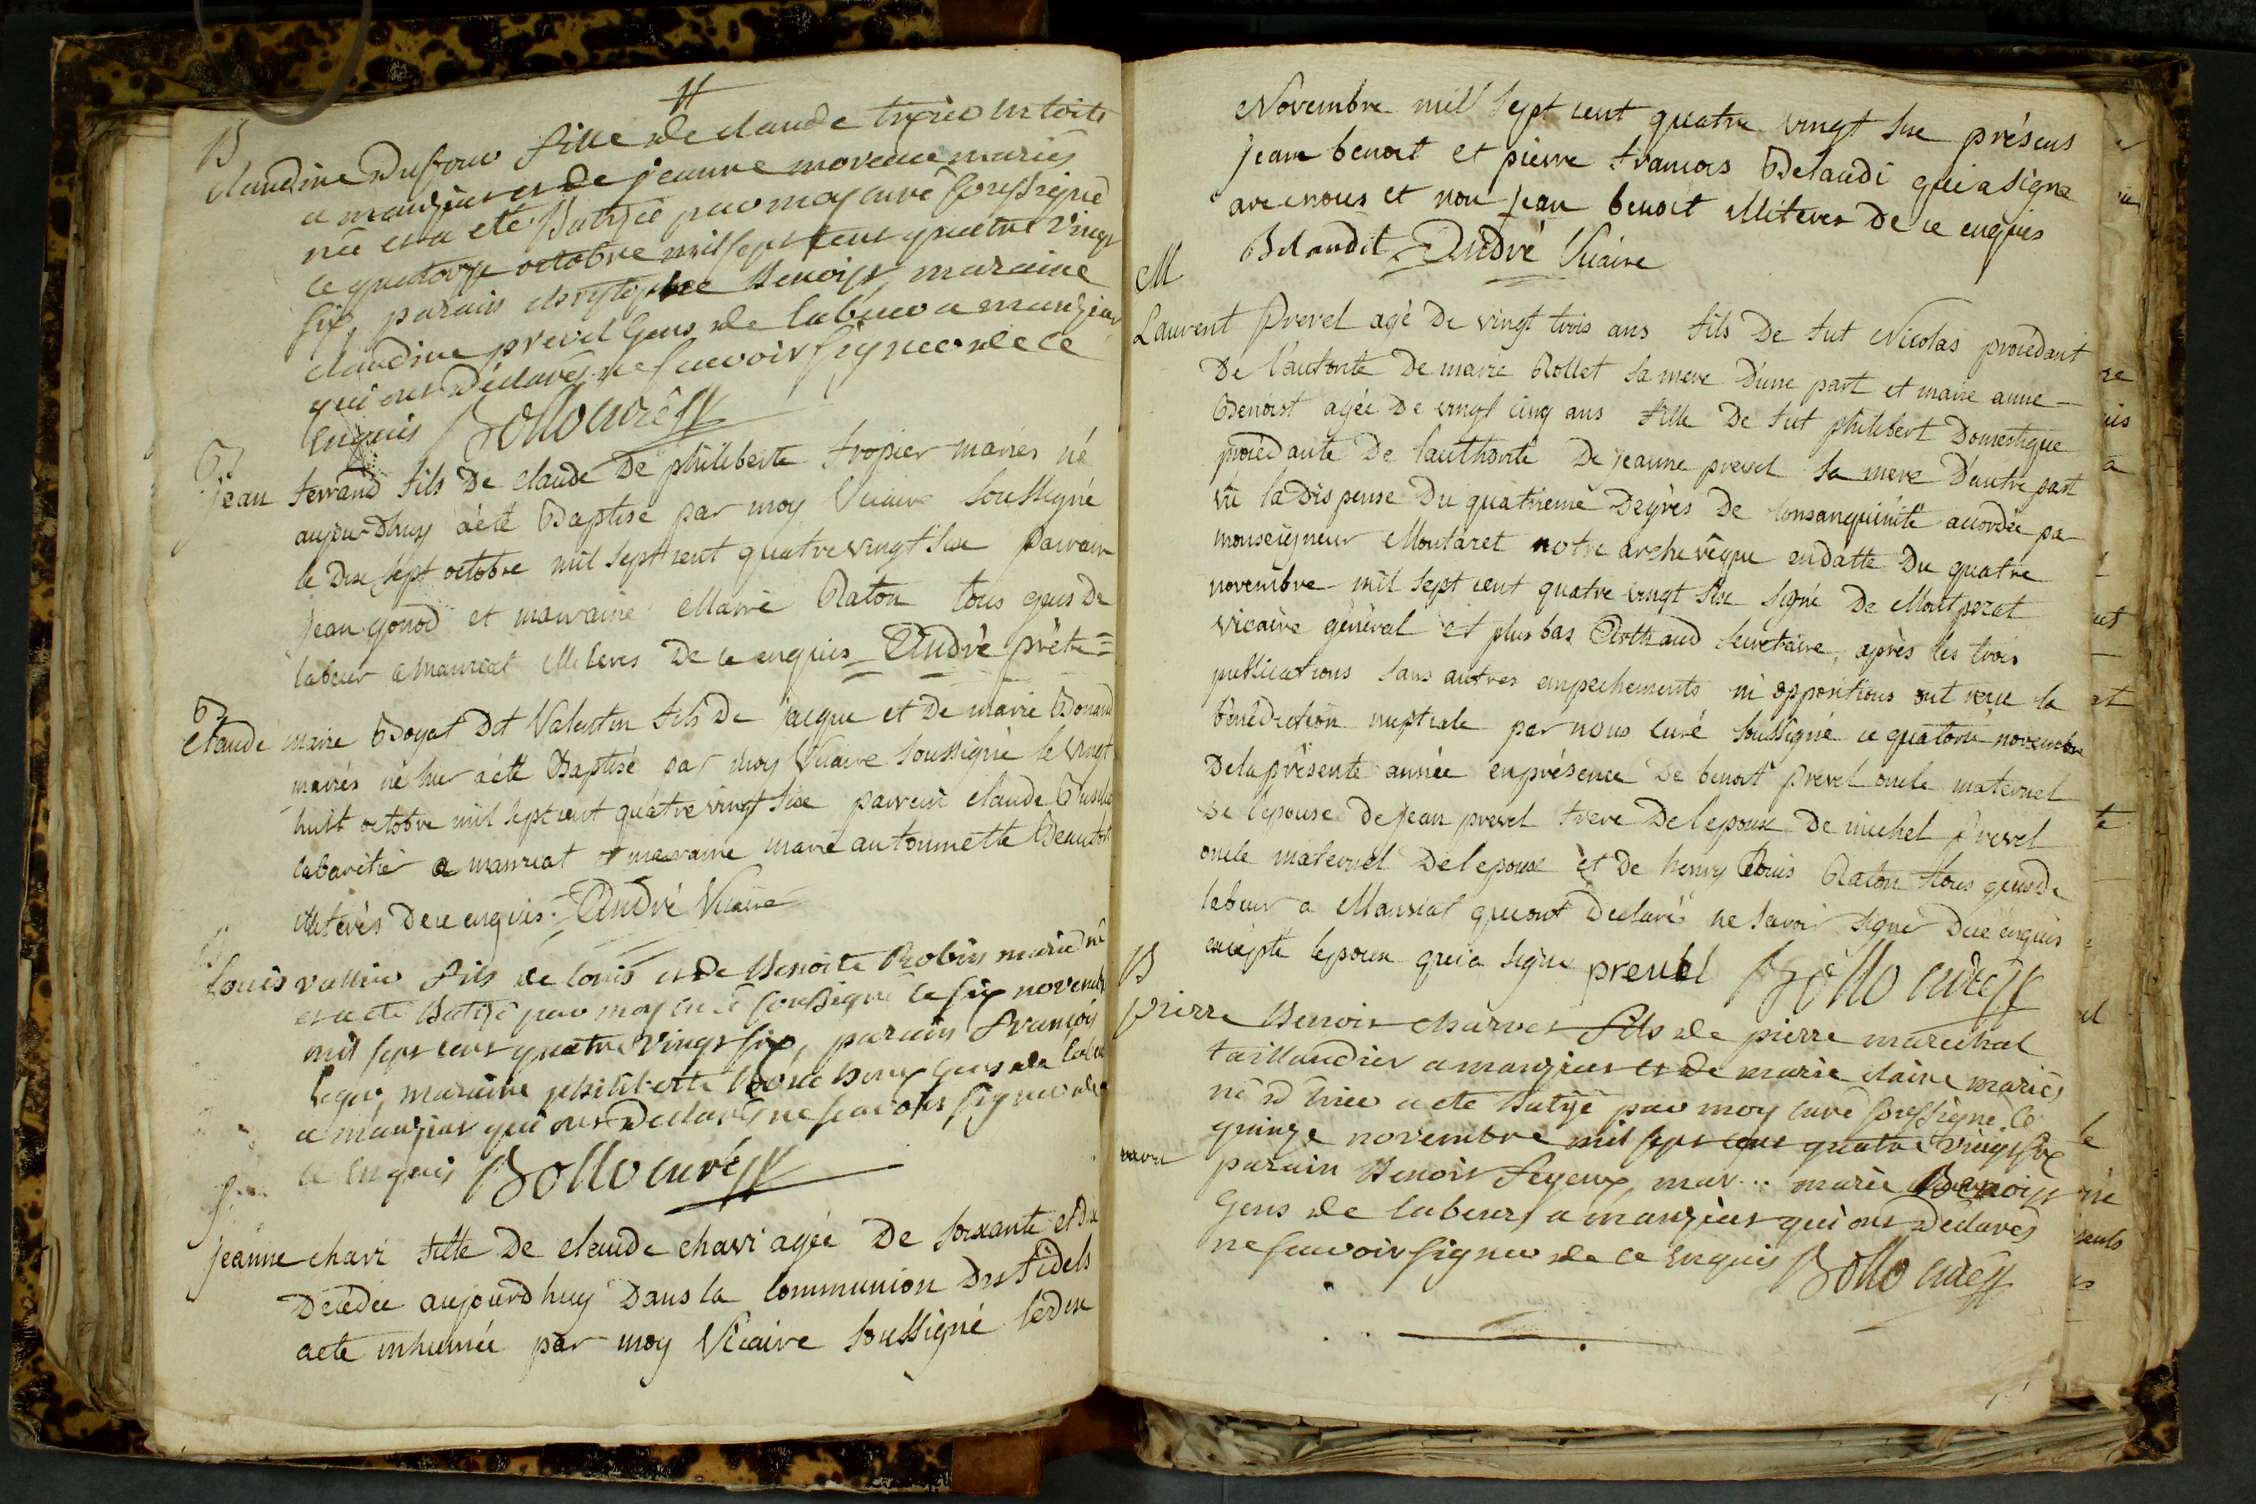 11
B
claudine Dufour fille de claude en toile
a manziat et de jeanne moreau mariés
née et a eté Batisé par moy curé soussigné
ce quatorze octobre mil sept cent quatre vingt
six, parain Benoist, maraine
claudine prevel Gens de labeur a manziat
qui ont Déclarés ne scavoir signer de ce
Enquis Bollo curé
B
jean ferrand fils De claude De philiberte tropier mariés né
aujourdhuy aété Baptisé par moy Vicaire soussigné
le Dix sept octobre mil sept cent quatre vingt six parrain
jean gonod et marraine Marie Raton tous gens De
labeur a manziat illiterés De ce enquis André prêt=
B
claude marie Boyat Dit Valentin fils De jacque et De marie Bonand
mariés né hier aété Baptisé par moy Vicaire soussigné le vingt
huit octobre mil sept cent quatre vingt six parrein claude
cabaretier a manziat et marraine marie antoinette
illiterés De ce enquis. André Vicaire
B
Louis vallier fils de louis et de Benoite Robin mariés né
et a eté Batisé par moy curé soussigné le six novembre
mil sept cent quatre vingt six, parain François
maraine philiberte Gens de labeur
a manziat qui ont Declarés ne scavoir signer de
ce Enquis Bollo curé
jeanne chavi fille De claude chavi agée De soixante et dix
Décédée aujourdhuy Dans la communion Des fidels
aeté inhumée par moy Vicaire soussigné ledix
Novembre mil sept cent quatre vingt six présens
jean benoit et pierre francois Belaudi qui a signé
avec nous et non jean benoit illiteres De ce enquis
Belaudit André Vicaire
M
Laurent Prevel agé De vingt trois ans fils De fut Nicolas procedant
De l'autorité De marie Rollet sa mere D'une part et marie anne
Benoist agée De vingt cinq ans fille De fut philibert Domestique
procedante De lauthorité De jeanne prevel sa mere D'autre part
vu la Dispense Du quatrieme Degrés De consanguinité accordée pa
monseigneur Montazet notre archevêque endatte Du quatre
novembre mil sept cent quatre vingt six signé De Montpezat
vicaire général et plus bas secretaire, après les trois
publications sans autres empechements ni oppositions ont reçu la
bénédiction nuptiale par nous curé soussigné ce quatorze novembre
Delaprésente année enprésence De benoit prevel oncle maternel
De lepouse De jean prevel frere Delepoux De michel prevel
oncle maternel Delepouse et De henry Louis Raton tous gens De
labeur a Manziat qui ont Declarés ne savoir signer De ce enquis
excepté lepoux qui a signé prevel Bollo curé
B
pierre Benoit charvet fils de pierre marechal
taillandier a manziat et de marie claire mariés
né d'hier a eté Batisé par moy curé soussigné le
quinze novembre mil sept cent quatre vingt six
parain Benoit feyeux, mar... marie Benoist
Gens de labeur a manziat qui ont Déclarés
ne scavoir signer de ce Enquis Bollo curé